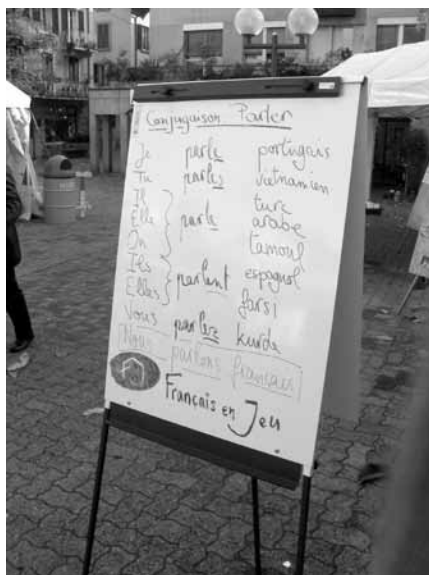 Conjugaison Parler
Je parle portugais
Tu parles vietnamien
Il turc
Elle parle arabe
On tamoul
Ils parlent espagnol
Elles farsi
Vous parlez kurde
Nous parlons français
FJ
Français en Jeu